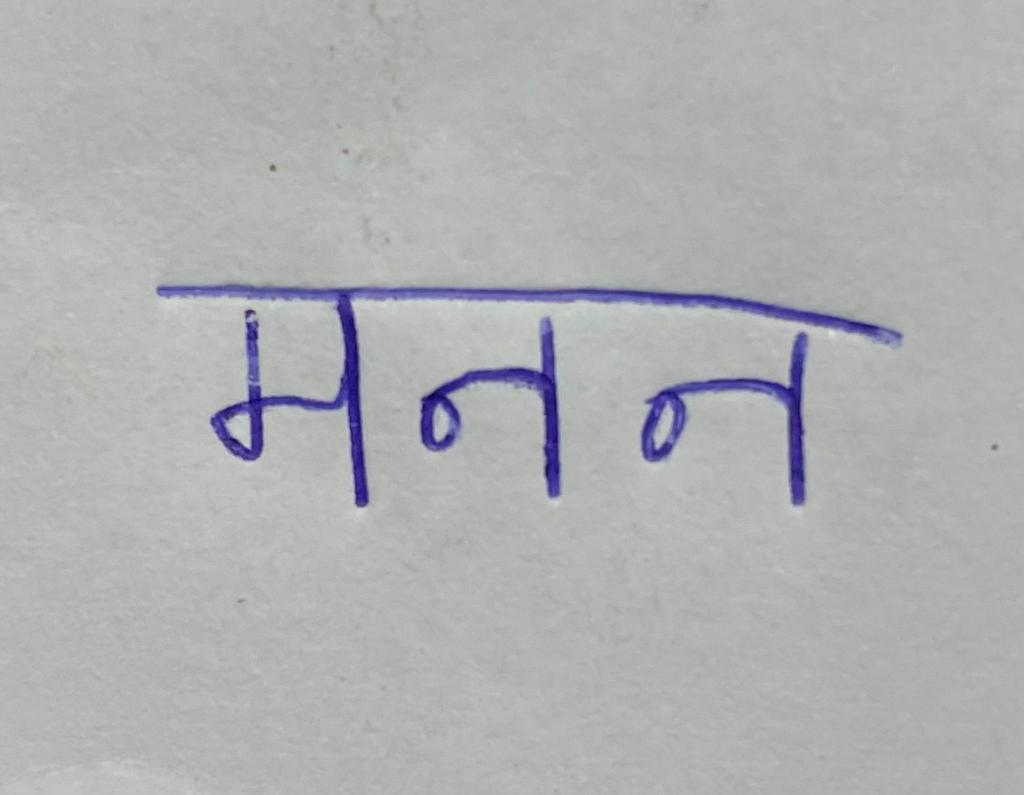 मनन